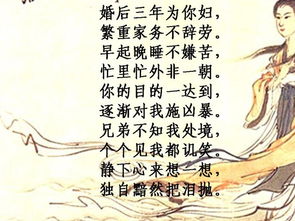 婚后三年为你妇，
繁重家务不辞劳。
早起晚睡不嫌苦，
忙里忙外非一朝。
你的目的一达到，
逐渐对我施凶暴。
兄弟不知我处境，
个个见我都讥笑。
静下心来想一想，
独自黯然把泪抛。